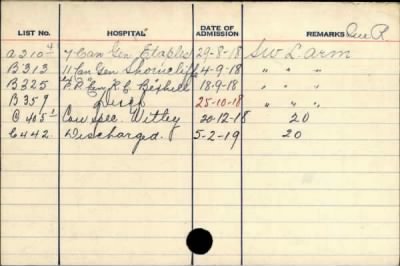 LIST No. HOSPITAL DATE OF ADMISSION REMARKS
a2104 7 Can Gen Etaples 29-8-18 SW L. arm
B313 11 Can Gen Shorncliffe 4-9-18 " " "
B325 Bexhill 18-9-18 " " "
B359 Disch 25-10-18 " " "
C405¹ Con Spec. Witley 20-12-18 20
C442 Discharged. 5-2-19 20